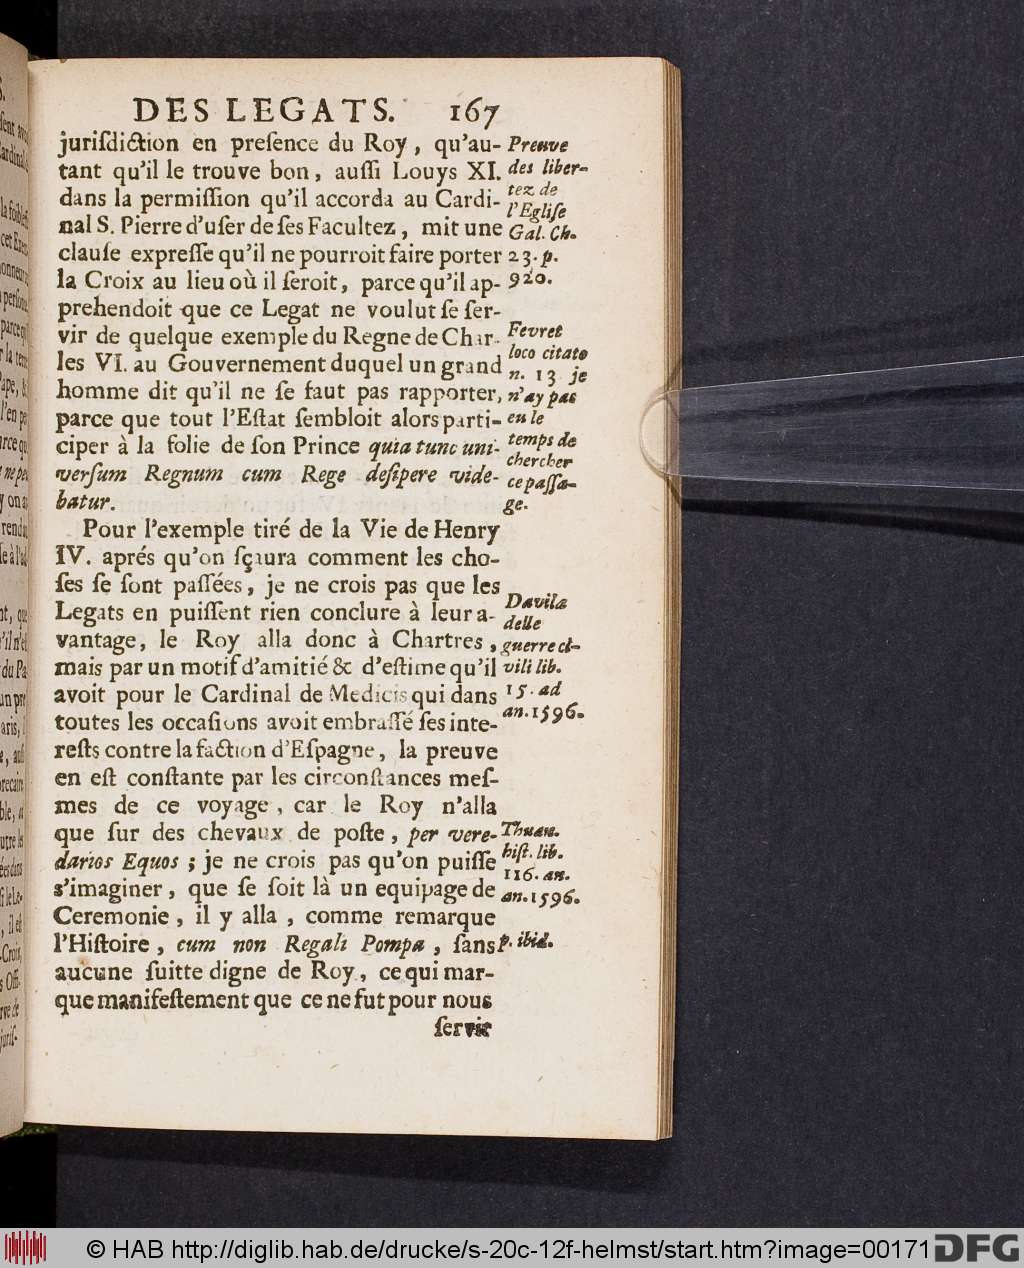 DES LEGATS. 167
juriſdiction en preſence du Roy, qu'au-
tant qu'il le trouve bon, auſſi Louys XI.
dans la permiſſion qu'il accorda au Cardi-
nal S. Pierre d'uſer de ſes Facultez, mit une
clauſe expreſſe qu'il ne pourroit faire porter
la Croix au lieu où il ſeroit, parce qu'il ap-
prehendoit que ce Legat ne voulut ſe ſer-
vir de quelque exemple du Regne de Char-
les VI. au Gouvernement duquel un grand
homme dit qu'il ne ſe faut pas rapporter,
parce que tout l'Eſtat ſembloit alors parti-
ciper à la folie de ſon Prince quia tunc uni-
verſum Regnum cum Rege deſipere vide-
batur.
Pour l'exemple tiré de la Vie de Henry
IV. aprés qu'on ſçaura comment les cho-
ſes ſe ſont paſſées, je ne crois pas que les
Legats en puiſſent rien conclure à leur a-
vantage, le Roy alla donc à Chartres,
mais par un motif d'amitié & d'eſtime qu'il
avoit pour le Cardinal de Medicis qui dans
toutes les occaſions avoit embraſſé ſes inte-
reſts contre la faction d'Eſpagne, la preuve
en eſt conſtante par les circonſtances meſ-
mes de ce voyage, car le Roy n'alla
que ſur des chevaux de poſte, per vere-
darios Equos; je ne crois pas qu'on puiſſe
s'imaginer, que ſe ſoit là un equipage de
Ceremonie, il y alla, comme remarque
l'Hiſtoire, cum non Regali Pompa, ſans
aucune ſuitte digne de Roy, ce qui mar-
que manifeſtement que ce ne fut pour nous
ſervir
Preuve
des liber-
tez de
l'Egliſe
Gal. Ch.
23. p.
920.
Fevret
loco citato
n. 13 je
n'ay pas
eu le
temps de
chercher
ce paſſa-
ge.
Davila
delle
guerre ci-
vili lib.
15. ad
an. 1596.
Thuan.
hiſt. lib.
116. an.
an. 1596.
p. ibid.
© HAB http://diglib.hab.de/drucke/s-20c-12f-helmst/start.htm?image=00171
DFG